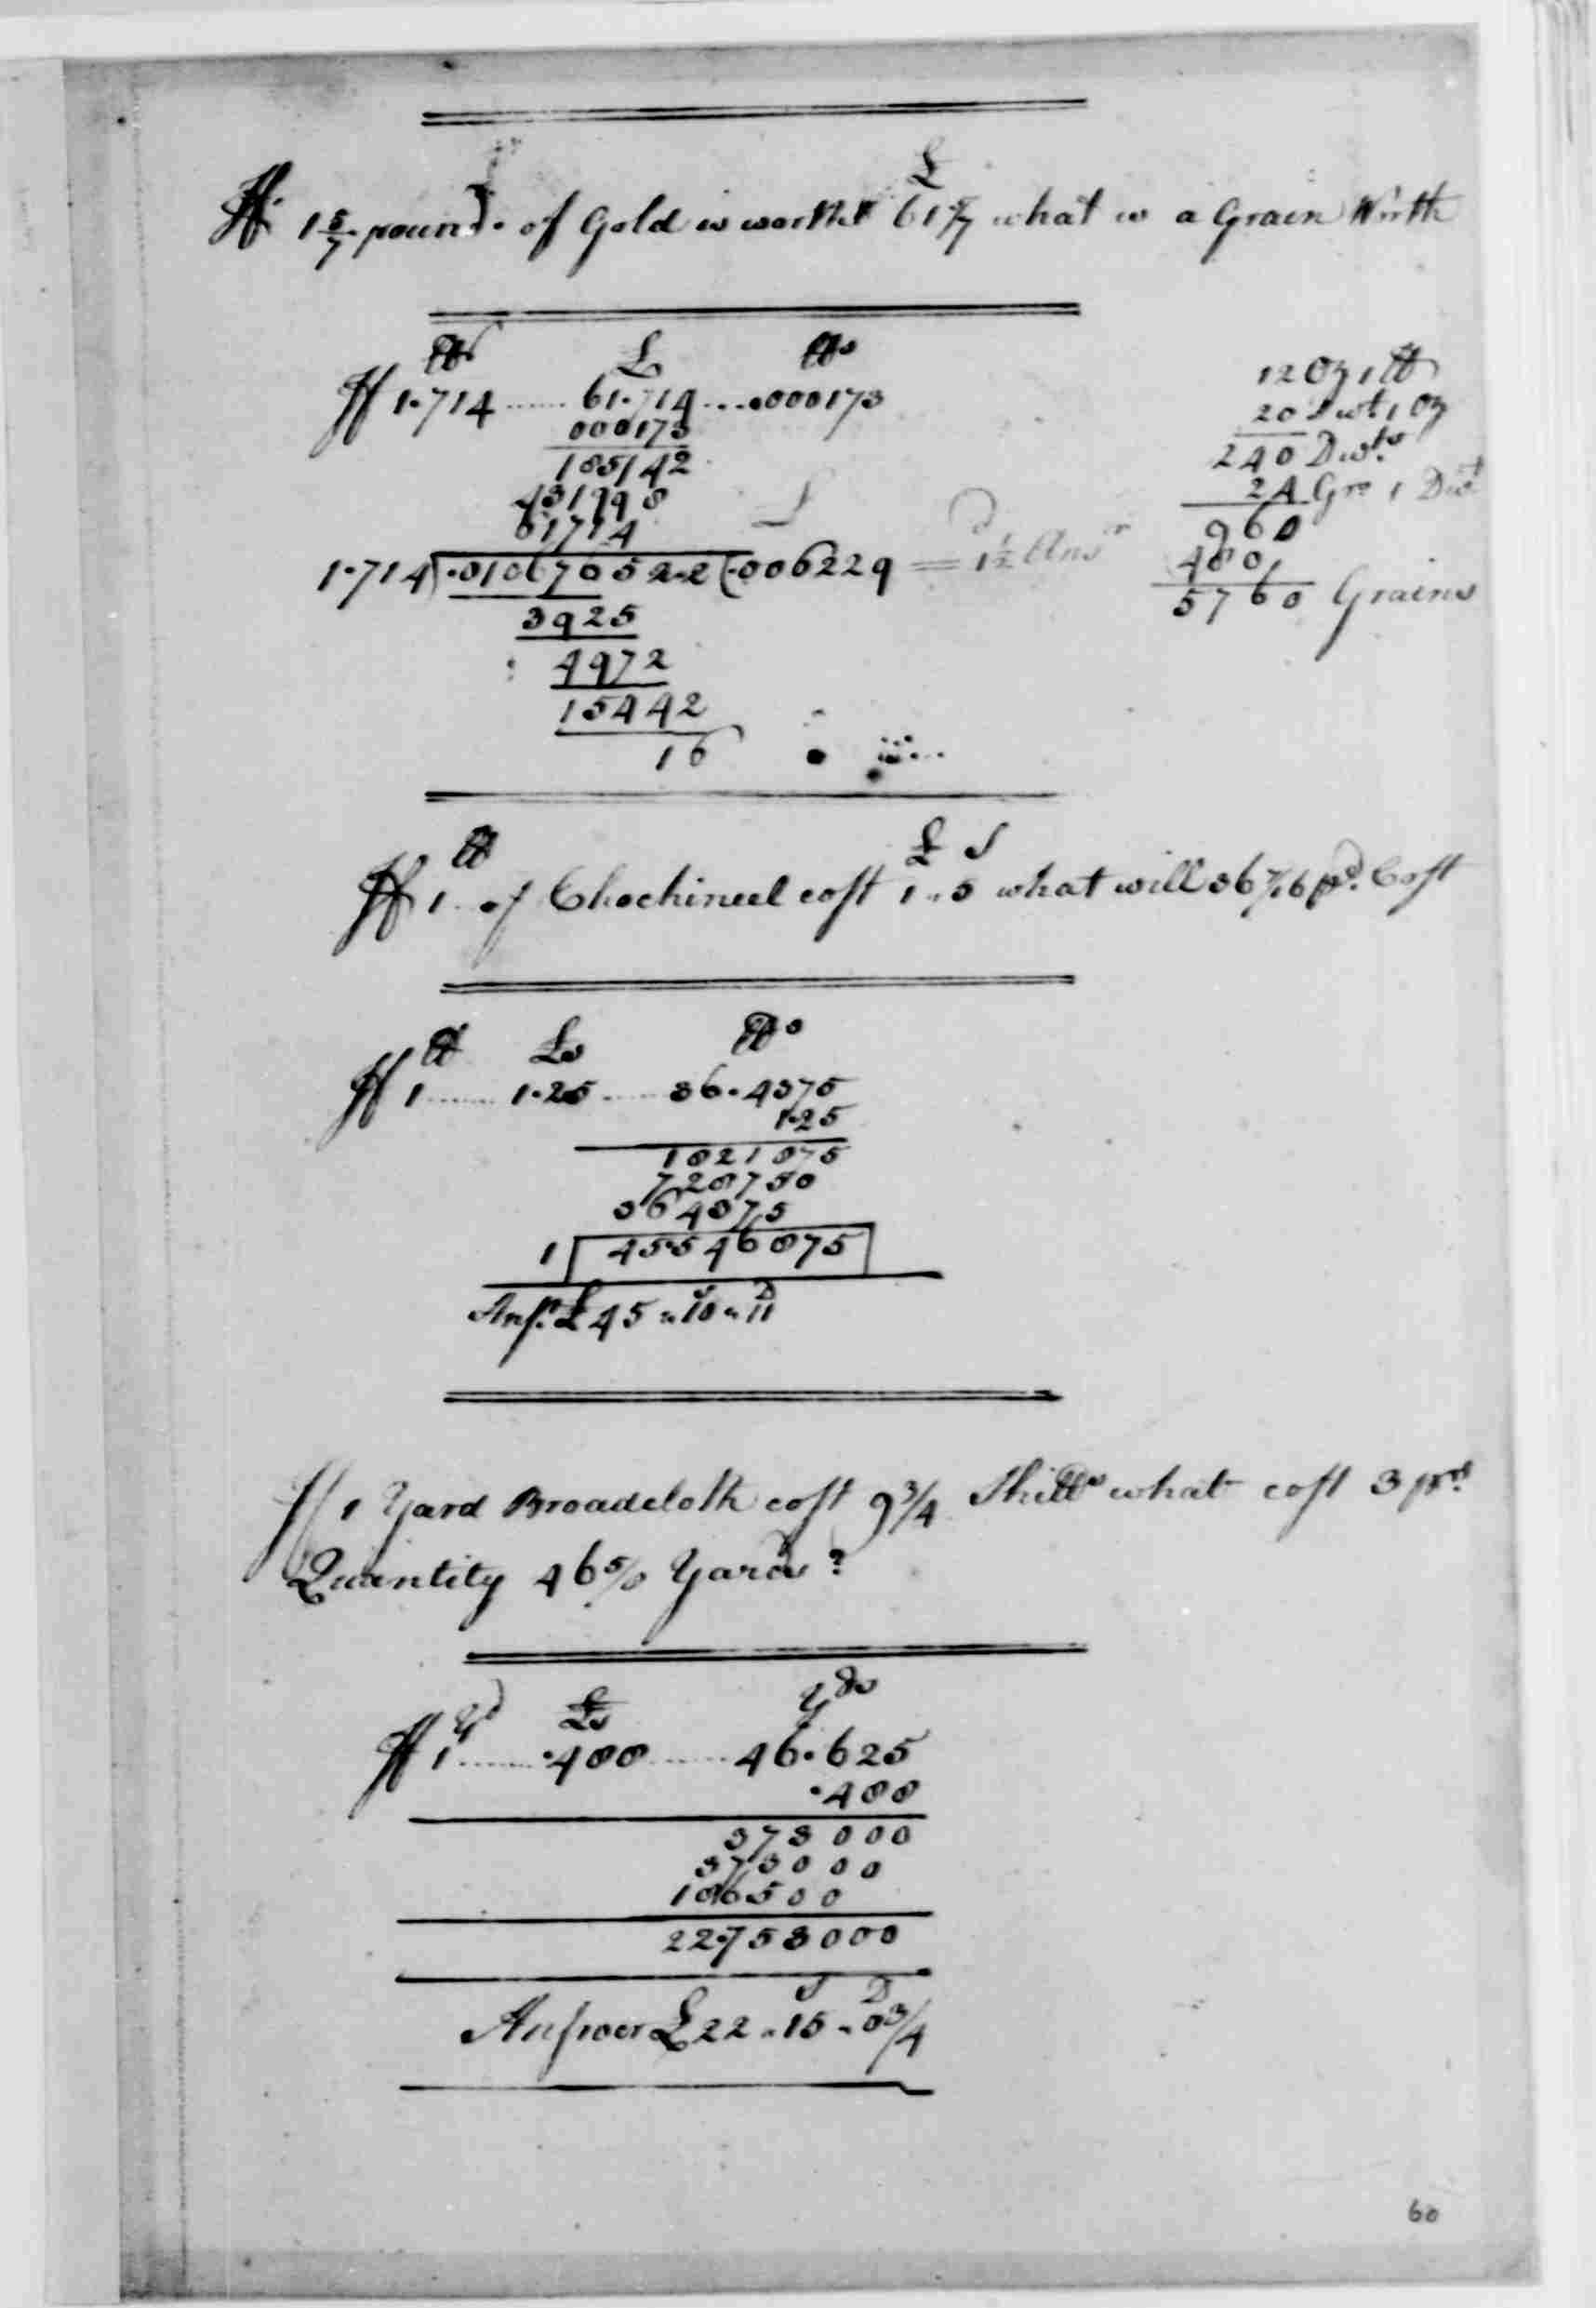 £
If 1 5/7 pounds of Gold is worth 61 5/7 what is a Grain Worth
lb £ lbs
If 1.714 ...... 61.714 .... .000173
000173
185142
431998
61714
1.714) .0106765 22 (.006229 = 1½ Ansr
3925
4972
15442
16
12 Oz 1 lb
20 Dwt 1 Oz
240 Dwts
24 Grs 1 Dwt
960
480
5760 Grains
lb £ S
If 1 of Chochineel cost 1 " 5 what will 36 7/16 pd. Cost
lb £s lbs
If 1 ...... 1.25 ..... 36.4375
1.25
1821875
728750
364375
1 45.546875
S D
Ansr. £ 45 " 10 " 11
If 1 Yard Broadcloth cost 9 3/4 Shills what cost 3 ps.
Quantity 46 5/8 Yards?
Yd £s Yds
If 1 ...... .488 ..... 46.625
.488
373000
373000
186500
22.753000
S D
Answer £ 22 " 15 " 0 3/4
60